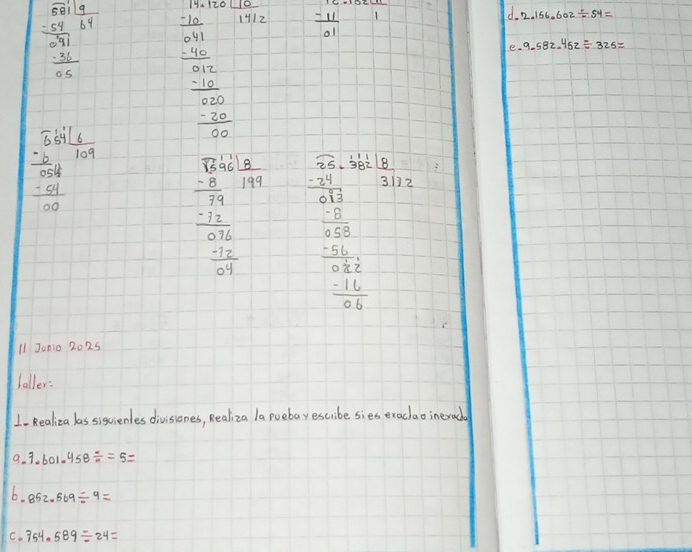 581 9
-54 64
041
-36
05
14.120 10
-10 1412
041
-40
012
-10
020
-20
00
-11 1
01
654 6
-6 109
054
-54
00
1596 8
-8 199
79
-72
076
-72
04
25.382 8
-24 3.172
013
-8
058
-56
022
-16
06
11 Junio 2025
Taller:
1- Realiza las siguientes divisiones, Realiza la pueba y escribe si es exacta o inexacta
a. 7.601.458 ÷ = 5=
b. 852.569 ÷ 9=
c. 754.589 ÷ 24=
d. 2.156.602 ÷ 54=
e. 9.582.452 ÷ 325=